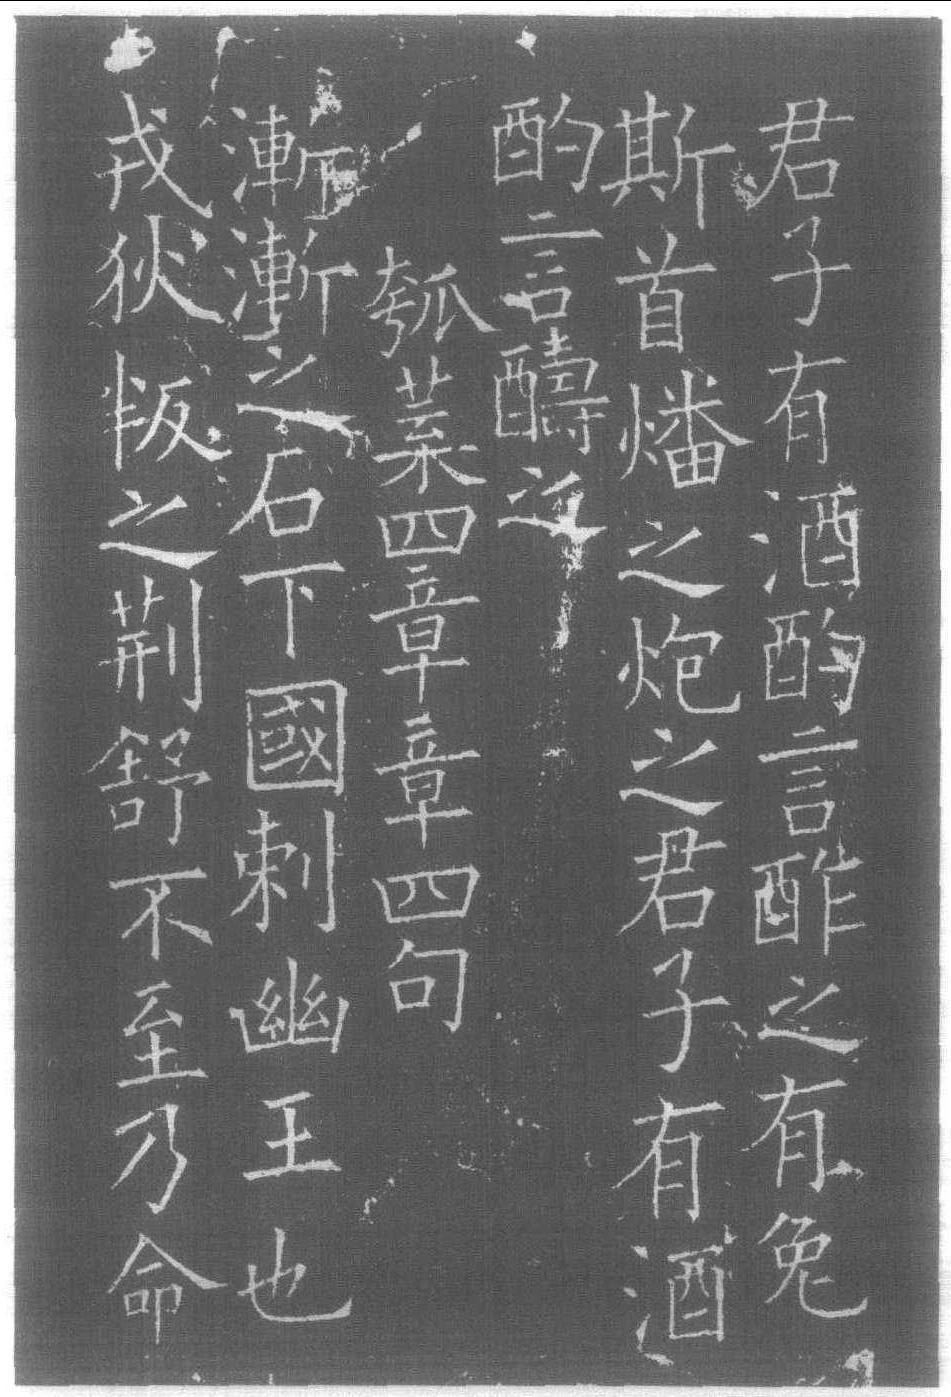 君子有酒酌言酢之有兔
斯首燔之炮之君子有酒
酌言醻之
瓠葉四章章四句
漸漸之石下國刺幽王也
戎狄叛之荆舒不至乃命